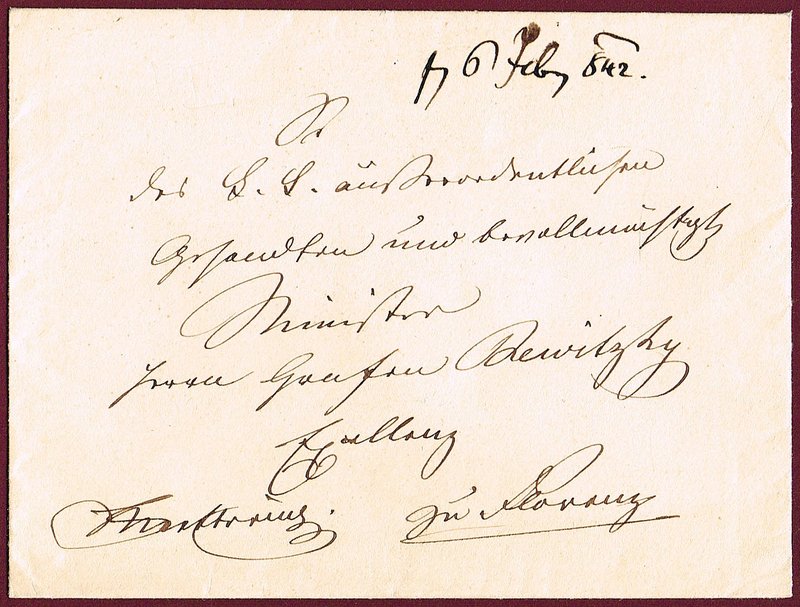 6 Feb 842.
Sr
des K. K. äußerordentlichen
Gesandten und bevollmächtigt
Minister
Herrn Grafen Rewitzky
Exellenz
zu Florenz